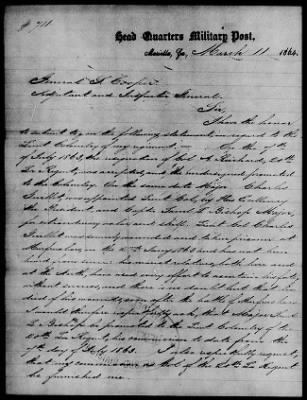 Head Quarters Military Post,
Marietta, Ga, March 11 1864.
General S. Cooper
Adjutant and Inspector General
Sir,
I have the honor
to submit the following statement in regard to the
Lieut Colonelcy of my regiment. On the 7th
of July 1863, the resignation of Col A Richard, 20th
La Regt, was accepted, and the undersigned promoted
to the Colonelcy. On the same date Major Charles
was appointed Lieut Col, by His Excellency
the President and Capt Saml L Bishop Major,
for extraordinary valor and skill. Lieut Col Charles
was severely wounded and taken prisoner at
Murfreesboro, on the and has not been
heard from since. his nearest relatives both here and
at the North, have used every effort to ascertain his fate,
without success, and there is no doubt but that he
died of his wounds, soon after the battle of Murfreesboro.
I would therefore respectfully ask, that Major Saml
L Bishop be promoted to the Lieut Colonelcy of the
20th La Regt, his commission to date from the
7th day of July 1863. I also respectfully request,
that my commission as Col of the 20th La Regiment
be furnished me.